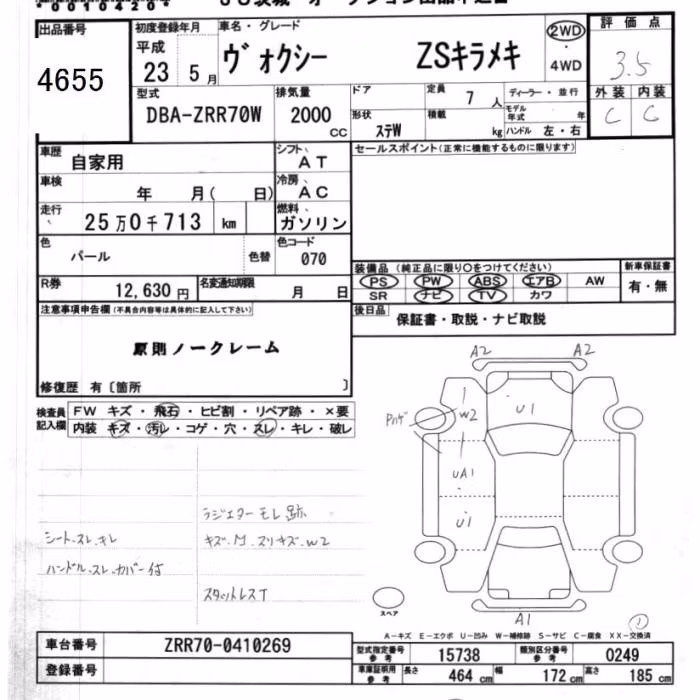 出品番号
4655
初度登録年月
平成
23 5月
車名・グレード
ヴォクシー ZSキラメキ
2WD
・
4WD
評価点
3.5
外装 内装
C C
型式
DBA-ZRR70W
排気量
2000
cc
ドア
形状
ステW
定員
7 人
積載
kg
ディーラー・並行
モデル年式 年
ハンドル 左・右
車歴
自家用
シフト
AT
車検
年 月( 日)
冷房
AC
走行
25万0千713 km
燃料
ガソリン
色
パール
色替
色コード
070
R券
12,630円
名変通知期限
月 日
セールスポイント(正常に機能するものに限ります)
装備品 (純正品に限り○をつけてください)
PS PW ABS エアB AW
SR ナビ TV カワ
新車保証書
有・無
後日品
保証書・取説・ナビ取説
注意事項申告欄(不具合内容等は具体的に記入して下さい)
原則ノークレーム
修復歴 有〔箇所 〕
検査員
記入欄
FW キズ・飛石・ヒビ割・リペア跡・×要
内装 キズ・汚レ・コゲ・穴・スレ・キレ・破レ
ラジエター モレ跡
シート.スレ.キレ
キズ.M.スリキズ.W2
ハンドル.スレ.カバー付
スタットレスT
A2 A2
W2
U1
UA1
U1
A1
スペア
A-キズ E-エクボ U-凹み W-補修跡 S-サビ C-腐食 XX-交換済
車台番号
ZRR70-0410269
登録番号
型式指定番号
参考
15738
類別区分番号
参考
0249
車庫証明用
参考
長さ 464 cm
幅 172 cm
高さ 185 cm